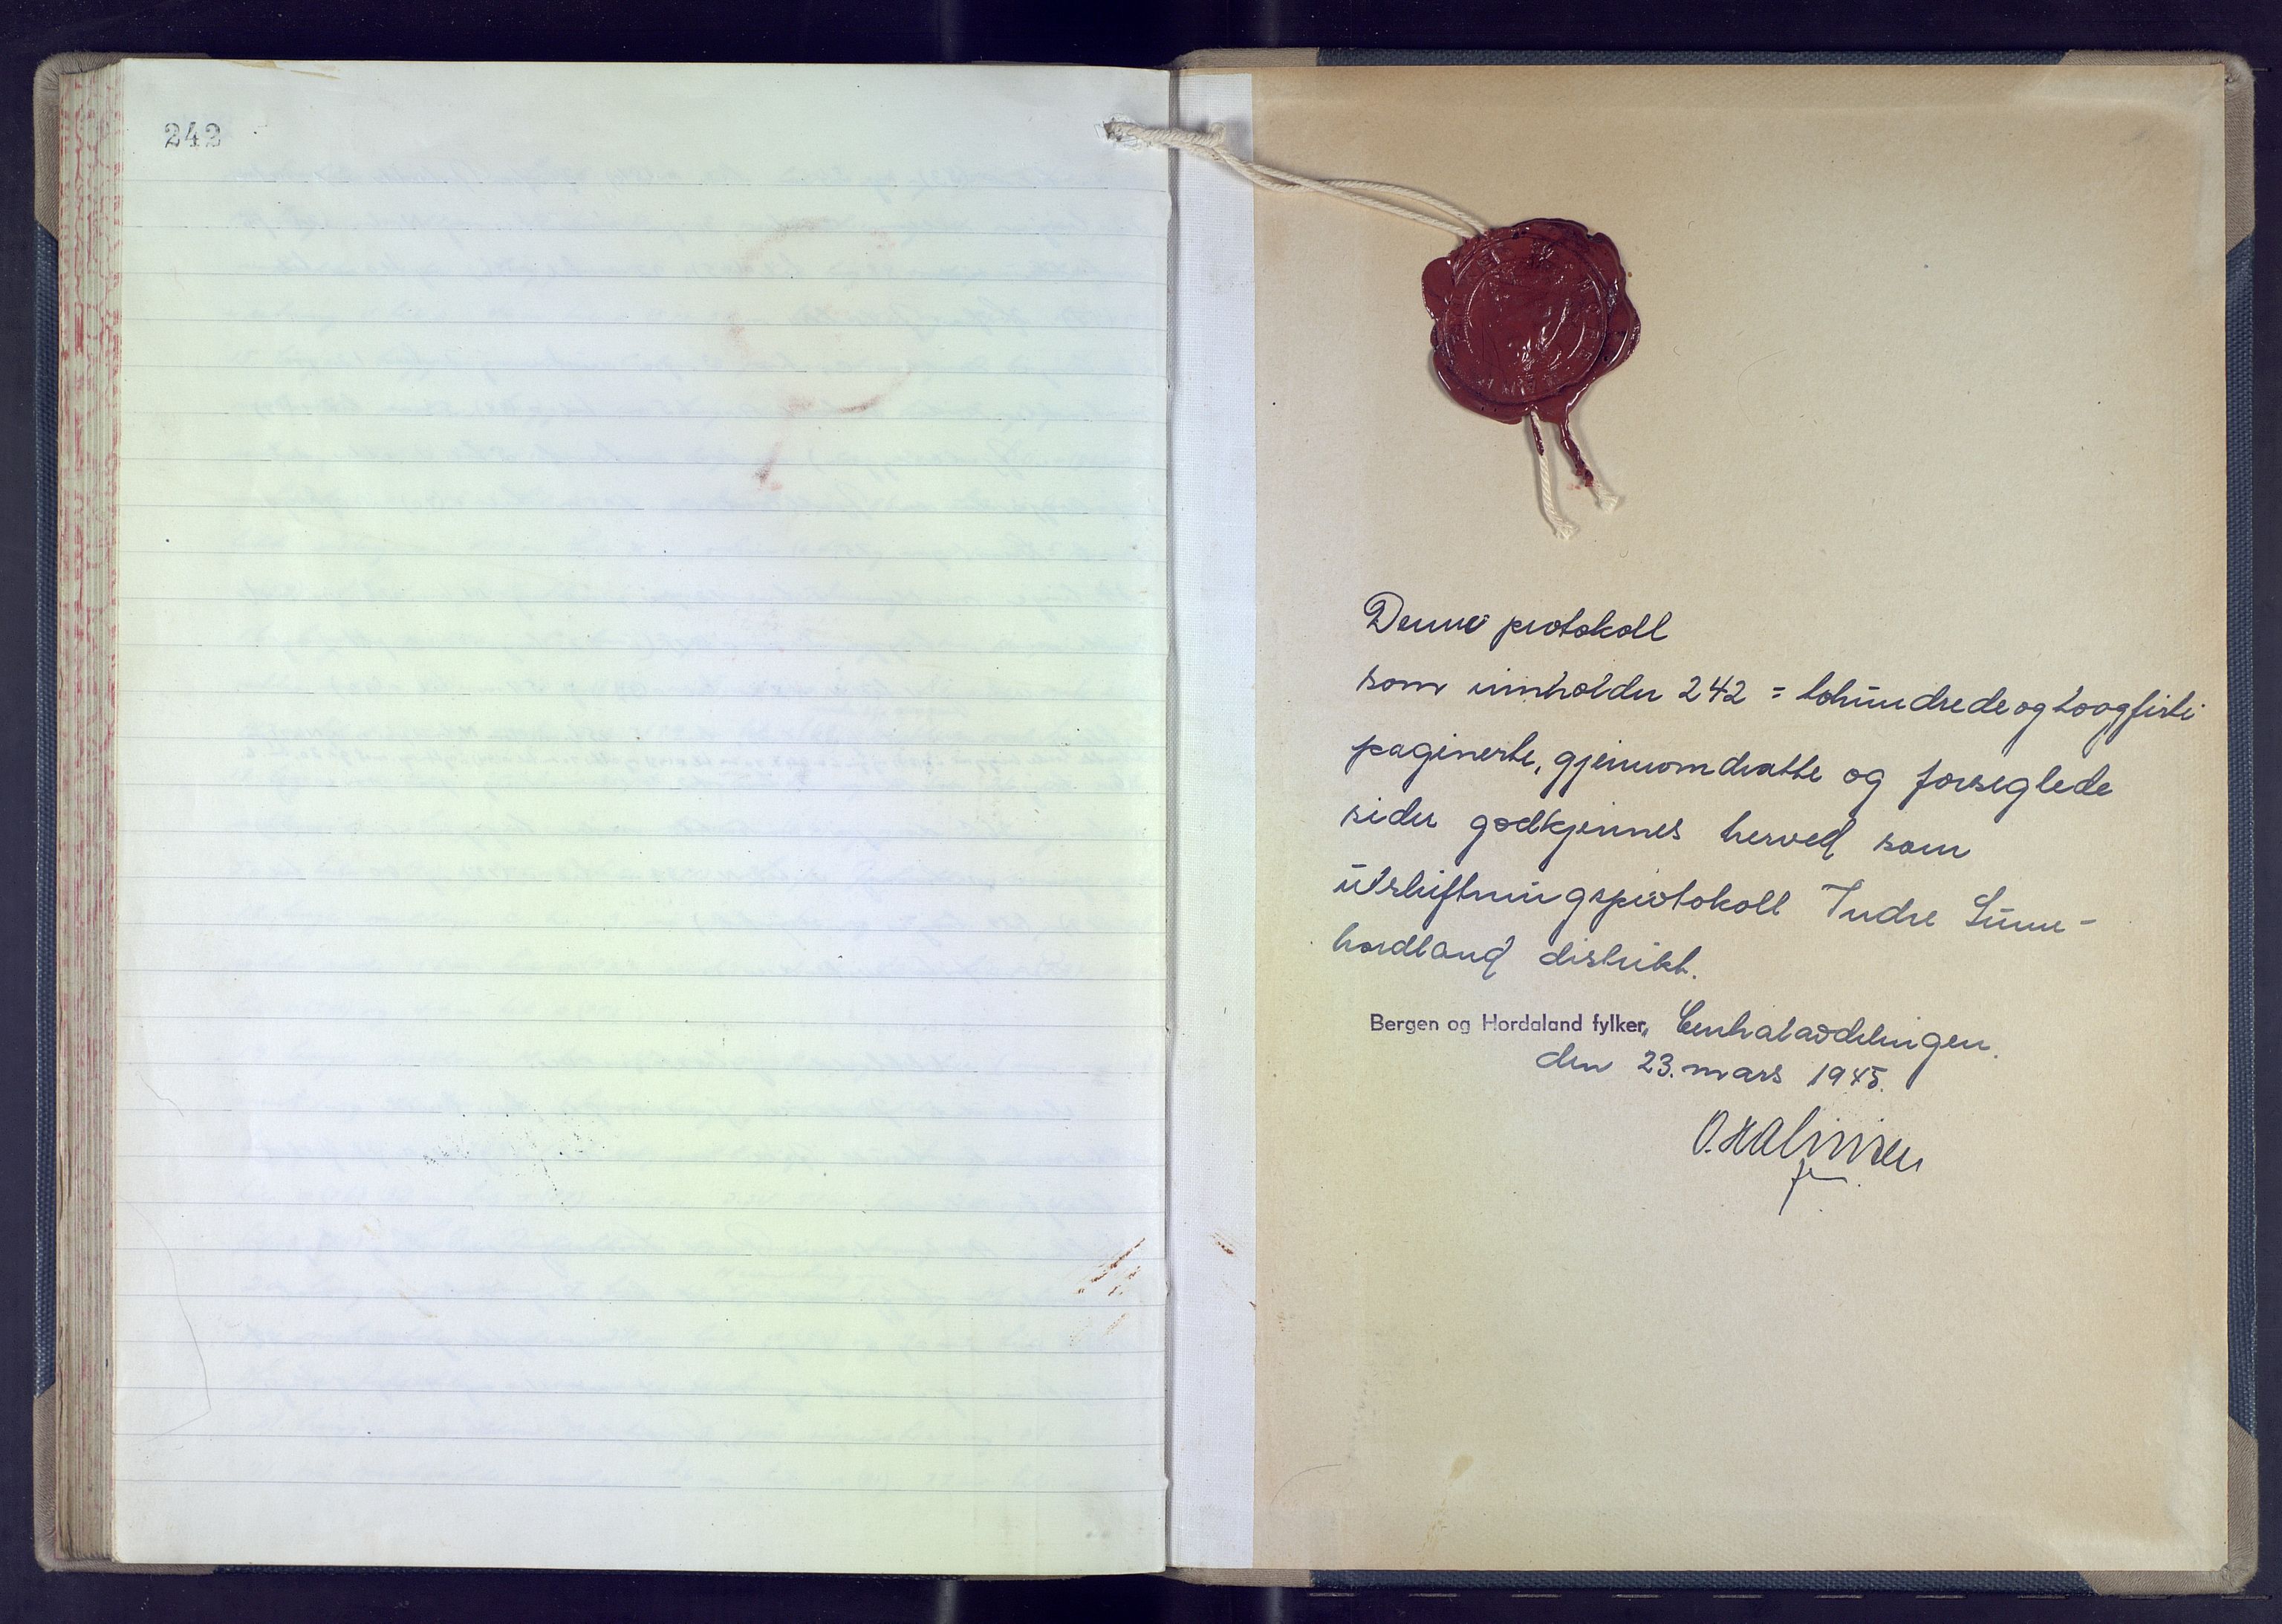 242
Denne protokoll
som innholder 242 = tohundredeogtoogfirti
paginerte, gjennomdratte og forseglede
sider godkjennes herved som
utskiftningsprotokoll Indre Sunn-
hordland distrikt.
Bergen og Hordaland fylker, Centralavdelingen.
den 23. mars 1945.